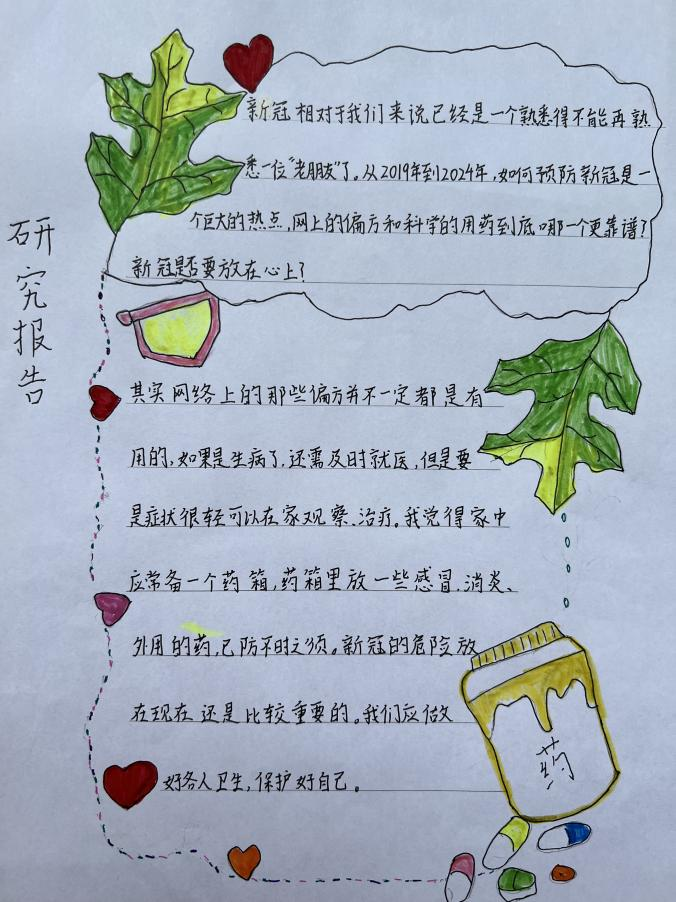 研究报告
新冠相对于我们来说已经是一个熟悉得不能再熟
悉一位“老朋友”了。从2019年到2024年,如何预防新冠是一
个巨大的热点,网上的偏方和科学的用药到底哪一个更靠谱?
新冠是否要放在心上?
其实网络上的那些偏方并不一定都是有
用的,如果是生病了,还需及时就医,但是要
是症状很轻可以在家观察、治疗。我觉得家中
应常备一个药箱,药箱里放一些感冒、消炎、
外用的药,已防不时之须。新冠的危险放
在现在还是比较重要的。我们应做
好各人卫生,保护好自己。
药